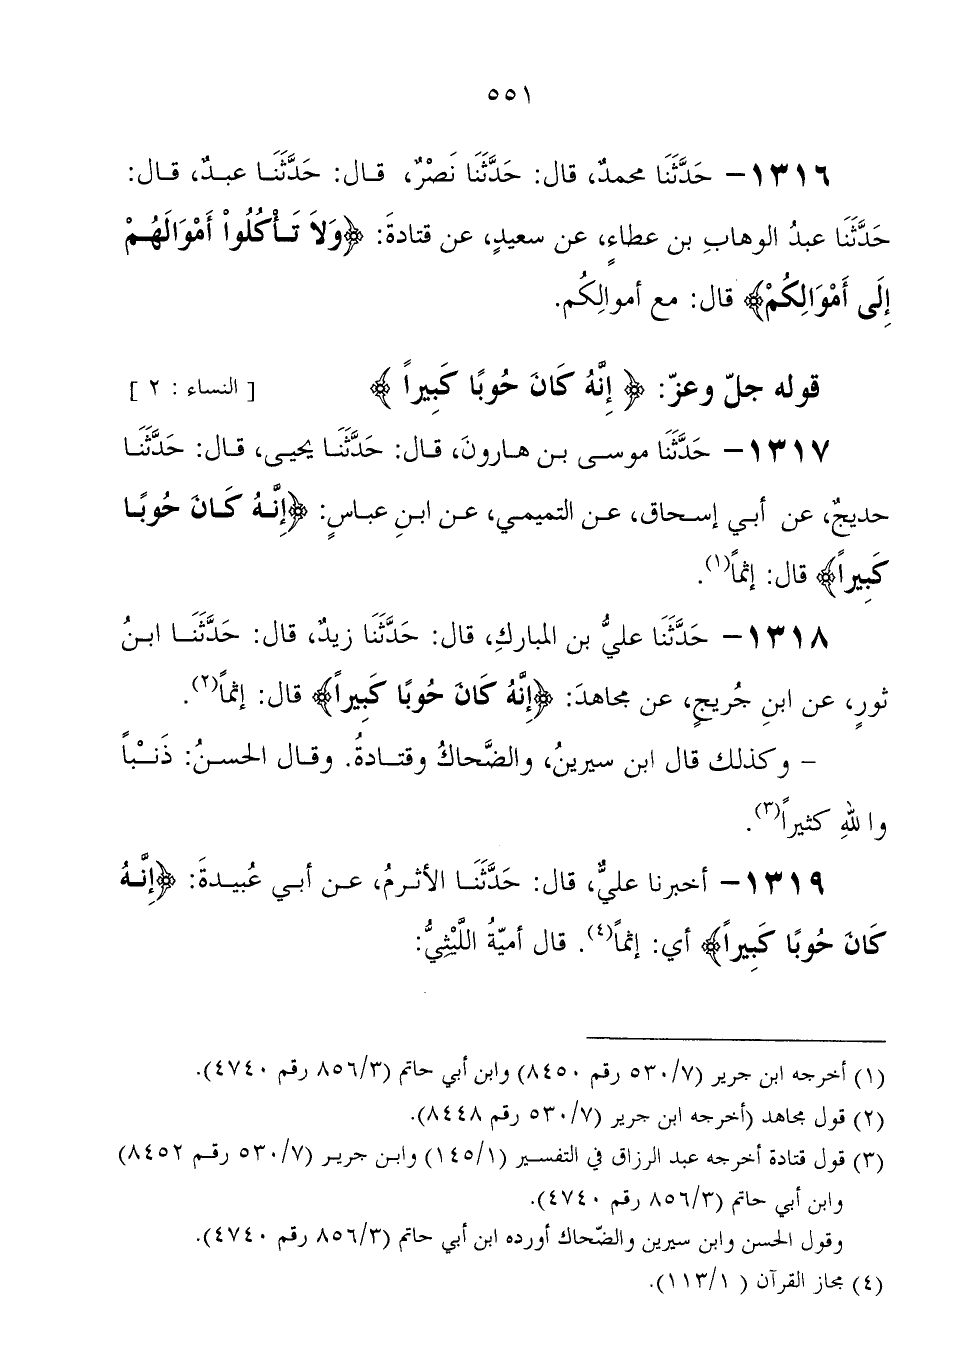 ٥٥١
١٣١٦- حَدَّثَنَا محمدٌ، قال: حَدَّثَنَا نَصْرٌ، قال: حَدَّثَنَا عبدٌ، قال:
حَدَّثَنَا عبدُ الوهابِ بن عطاءٍ، عن سعيدٍ، عن قتادةَ: ﴿وَلاَ تَأْكُلُواْ أَمْوَالَهُمْ
إِلَى أَمْوَالِكُمْ﴾ قال: مع أموالِكُم.
قوله جلّ وعزّ: ﴿ إِنَّهُ كَانَ حُوبًا كَبِيراً ﴾ [ النساء : ٢ ]
١٣١٧- حَدَّثَنَا موسى بن هارونَ، قال: حَدَّثَنَا يحيى، قال: حَدَّثَنَا
حديجٌ، عن أبي إسحاق، عن التميمي، عن ابنِ عباسٍ: ﴿إِنَّهُ كَانَ حُوبًا
كَبِيراً﴾ قال: إثماً(١).
١٣١٨- حَدَّثَنَا عليُّ بن المباركِ، قال: حَدَّثَنَا زيدٌ، قال: حَدَّثَنَا ابنُ
ثورٍ، عن ابنِ جُريجٍ، عن مجاهدَ: ﴿إِنَّهُ كَانَ حُوبًا كَبِيراً﴾ قال: إثماً(٢).
- وكذلك قال ابن سيرينُ، والضَّحاكُ وقتادةُ. وقال الحسنُ: ذَنْباً
واللهِ كثيراً(٣).
١٣١٩- أخبرنا عليٌّ، قال: حَدَّثَنَا الأثرمُ، عن أبي عُبيدةَ: ﴿إِنَّهُ
كَانَ حُوبًا كَبِيراً﴾ أي: إثماً(٤). قال أميّةُ اللَّيْثِيُّ:
(١) أخرجه ابن جرير (٥٣٠/٧ رقم ٨٤٥٠) وابن أبي حاتم (٨٥٦/٣ رقم ٤٧٤٠).
(٢) قول مجاهد (أخرجه ابن جرير (٥٣٠/٧ رقم ٨٤٤٨).
(٣) قول قتادة أخرجه عبد الرزاق في التفسير (١٤٥/١) وابن جرير (٥٣٠/٧ رقم ٨٤٥٢)
وابن أبي حاتم (٨٥٦/٣ رقم ٤٧٤٠).
وقول الحسن وابن سيرين والضّحاك أورده ابن أبي حاتم (٨٥٦/٣ رقم ٤٧٤٠).
(٤) مجاز القرآن ( ١١٣/١).